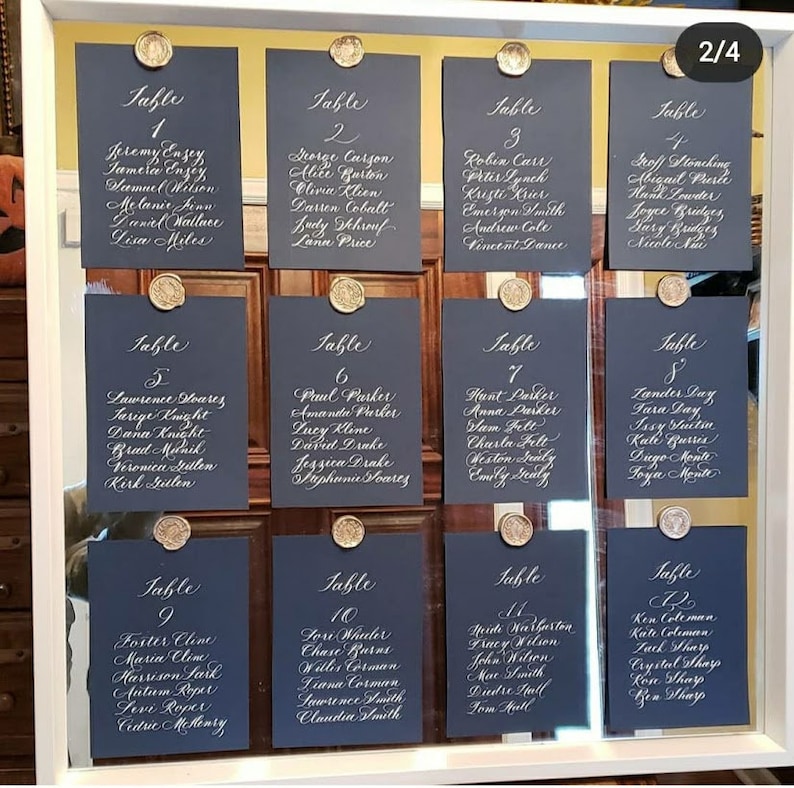 2/4
Table
1
Jeremy Enzey
Tamera Enzey
Samuel Wilson
Melanie Finn
Daniel Wallace
Lisa Miles
Table
2
George Carson
Alice Burton
Olivia Klien
Darren Cobalt
Judy Schrouf
Lana Price
Table
3
Robin Carr
Peter Lynch
Kristi Krier
Emerson Smith
Andrew Cole
Vincent Dance
Table
4
Geoff
Abigail Pierce
Hank Lowder
Joyce Bridges
Gary Bridges
Nicole
Table
5
Lawrence Soarez
Knight
Dana Knight
Brad
Veronica Gillen
Kirk Gillen
Table
6
Paul Parker
Amanda Parker
Lucy Kline
David Drake
Jessica Drake
Stephanie Soarez
Table
7
Hunt Parker
Anna Parker
Sam Felt
Charla Felt
Weston Gealy
Emily Gealy
Table
8
Zander Day
Tara Day
Issy
Kate Burris
Diego Monte
Toya Monte
Table
9
Foster Cline
Maria Cline
Harrison Lark
Autum Roper
Levi Roper
Cedric McHenry
Table
10
Lori Whaler
Chase Burns
Willis Corman
Tiana Corman
Lawrence Smith
Claudia Smith
Table
11
Heidi Warburton
Tracy Wilson
John Wilson
Mac Smith
Diedre Hall
Tom Hall
Table
12
Ken Coleman
Kate Coleman
Zack Sharp
Crystal Sharp
Rose Sharp
Ben Sharp